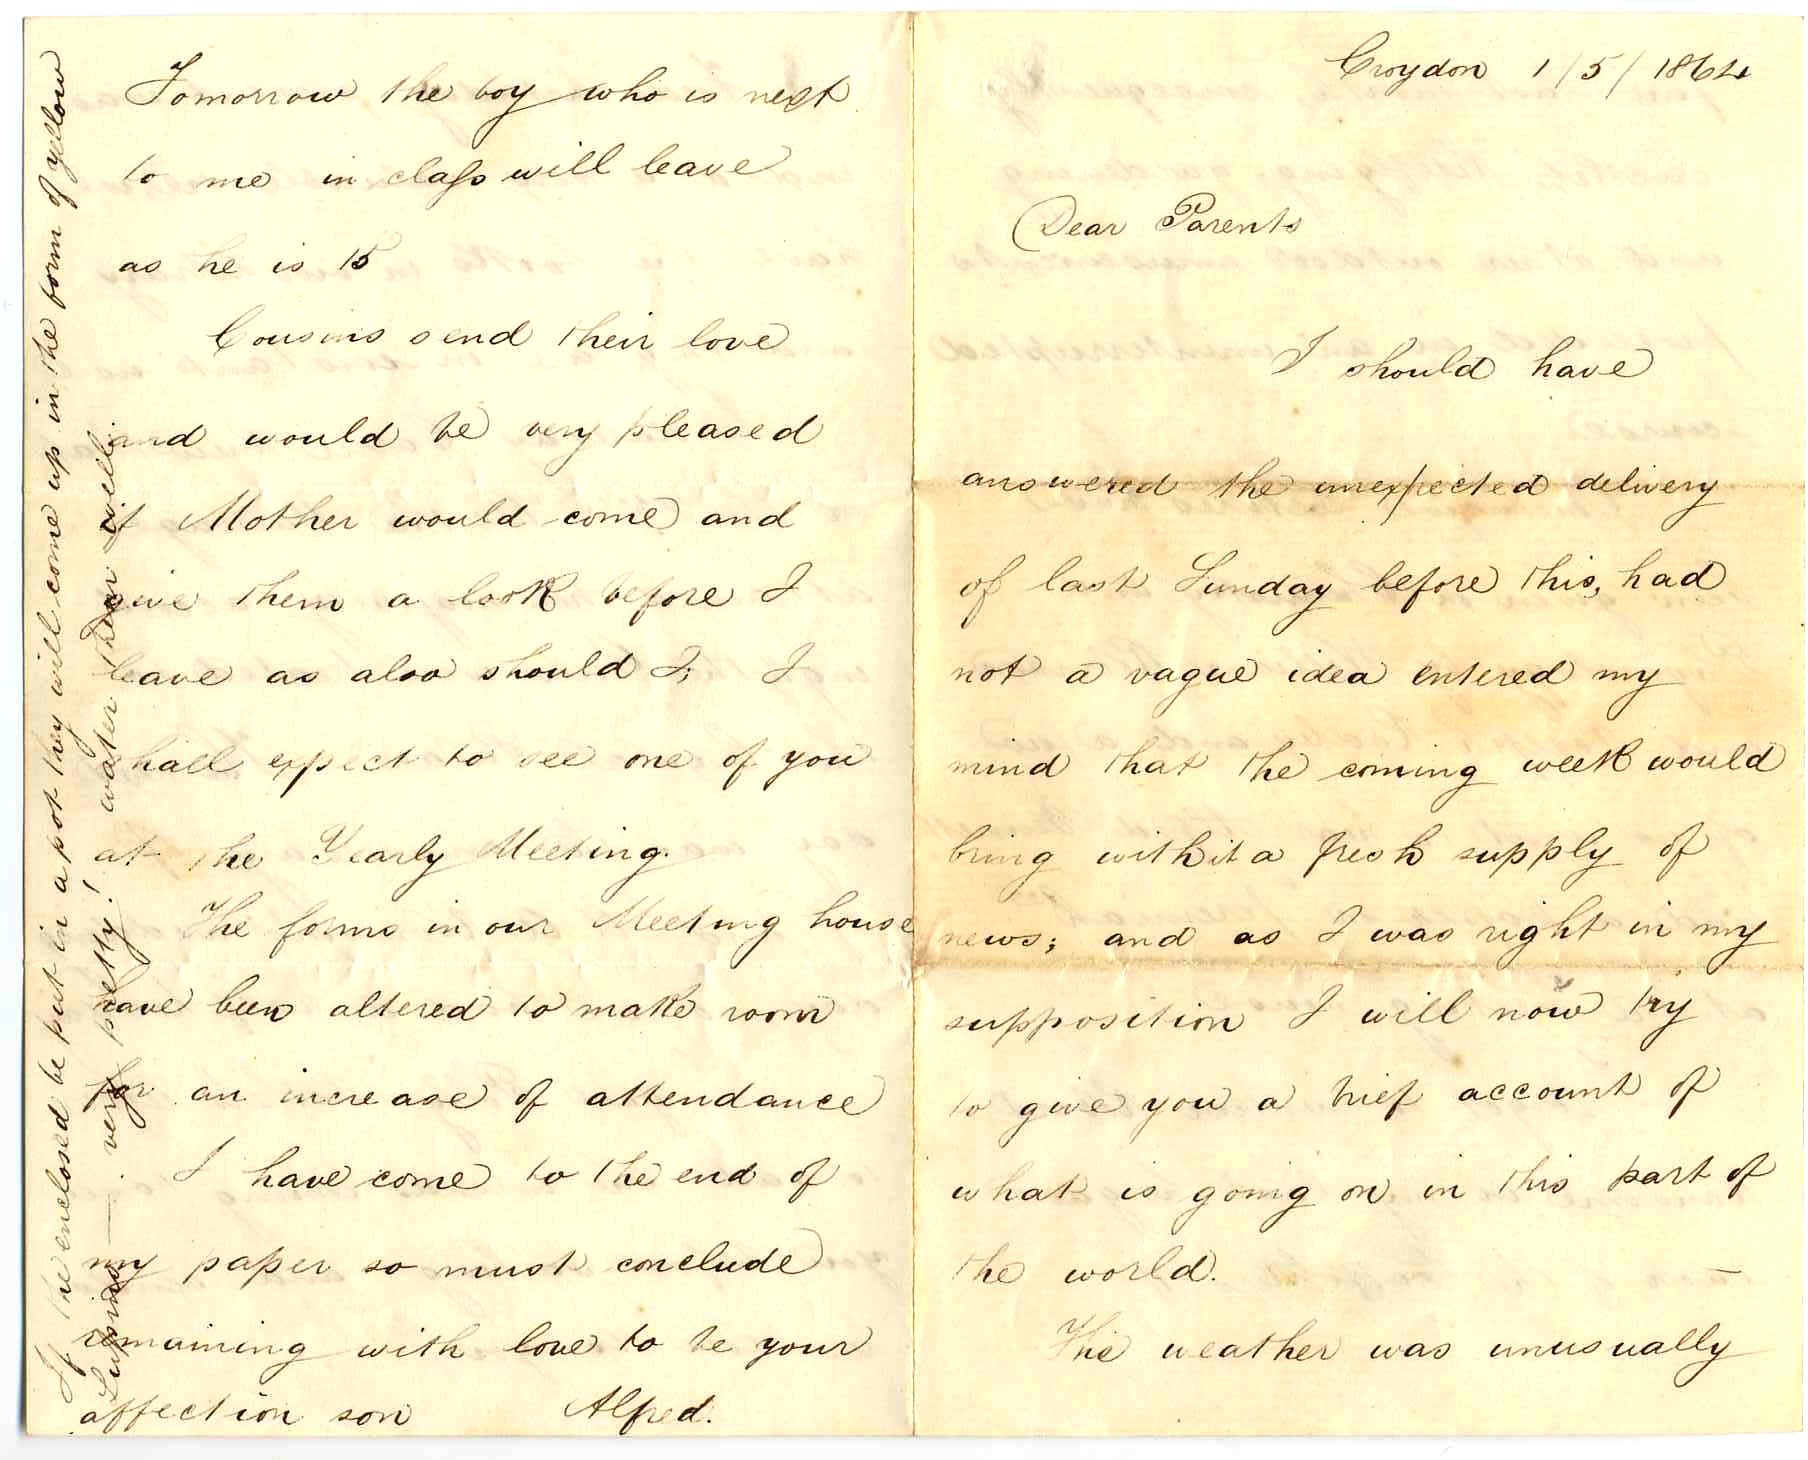 Croydon 1/5/1864
Dear Parents
I should have
answered the unexpected delivery
of last Sunday before this, had
not a vague idea entered my
mind that the coming week would
bring with it a fresh supply of
news; and as I was right in my
supposition I will now try
to give you a brief account of
what is going on in this part of
the world. —
The weather was unusually
Tomorrow the boy who is next
to me in class will leave
as he is 15
Cousins send their love
and would be very pleased
if Mother would come and
give them a look before I
leave as also should I; I
shall expect to see one of you
at the Yearly Meeting.
The forms in our Meeting house
have been altered to make room
for an increase of attendance
I have come to the end of
my paper so must conclude
remaining with love to be your
affection son Alfred.
If the enclosed be put in a pot they will come up in the form of yellow
Lupins — . very pretty! water them well.